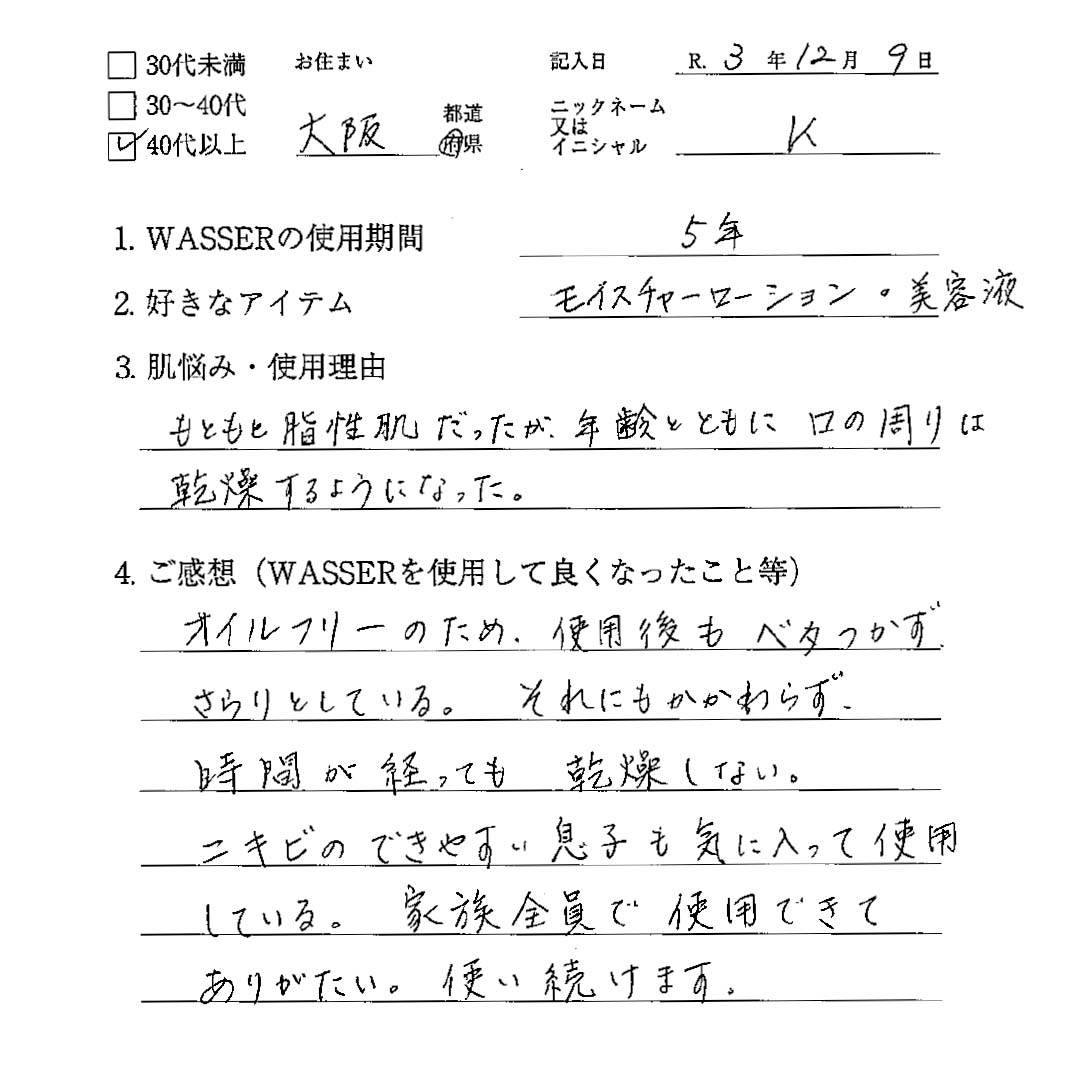 30代未満 お住まい 記入日 R. 3 年 12 月 9 日
30〜40代 都道 ニックネーム
40代以上 大阪 府県 又は K
イニシャル
1. WASSERの使用期間 5年
2. 好きなアイテム モイスチャーローション。美容液
3. 肌悩み・使用理由
もともと脂性肌だったが、年齢とともに 口の周りは
乾燥するようになった。
4. ご感想（WASSERを使用して良くなったこと等）
オイルフリーのため、使用後も ベタつかず、
さらりとしている。 それにもかかわらず、
時間が経っても 乾燥しない。
ニキビのできやすい息子も気に入って使用
している。 家族全員で使用できて
ありがたい。使い続けます。